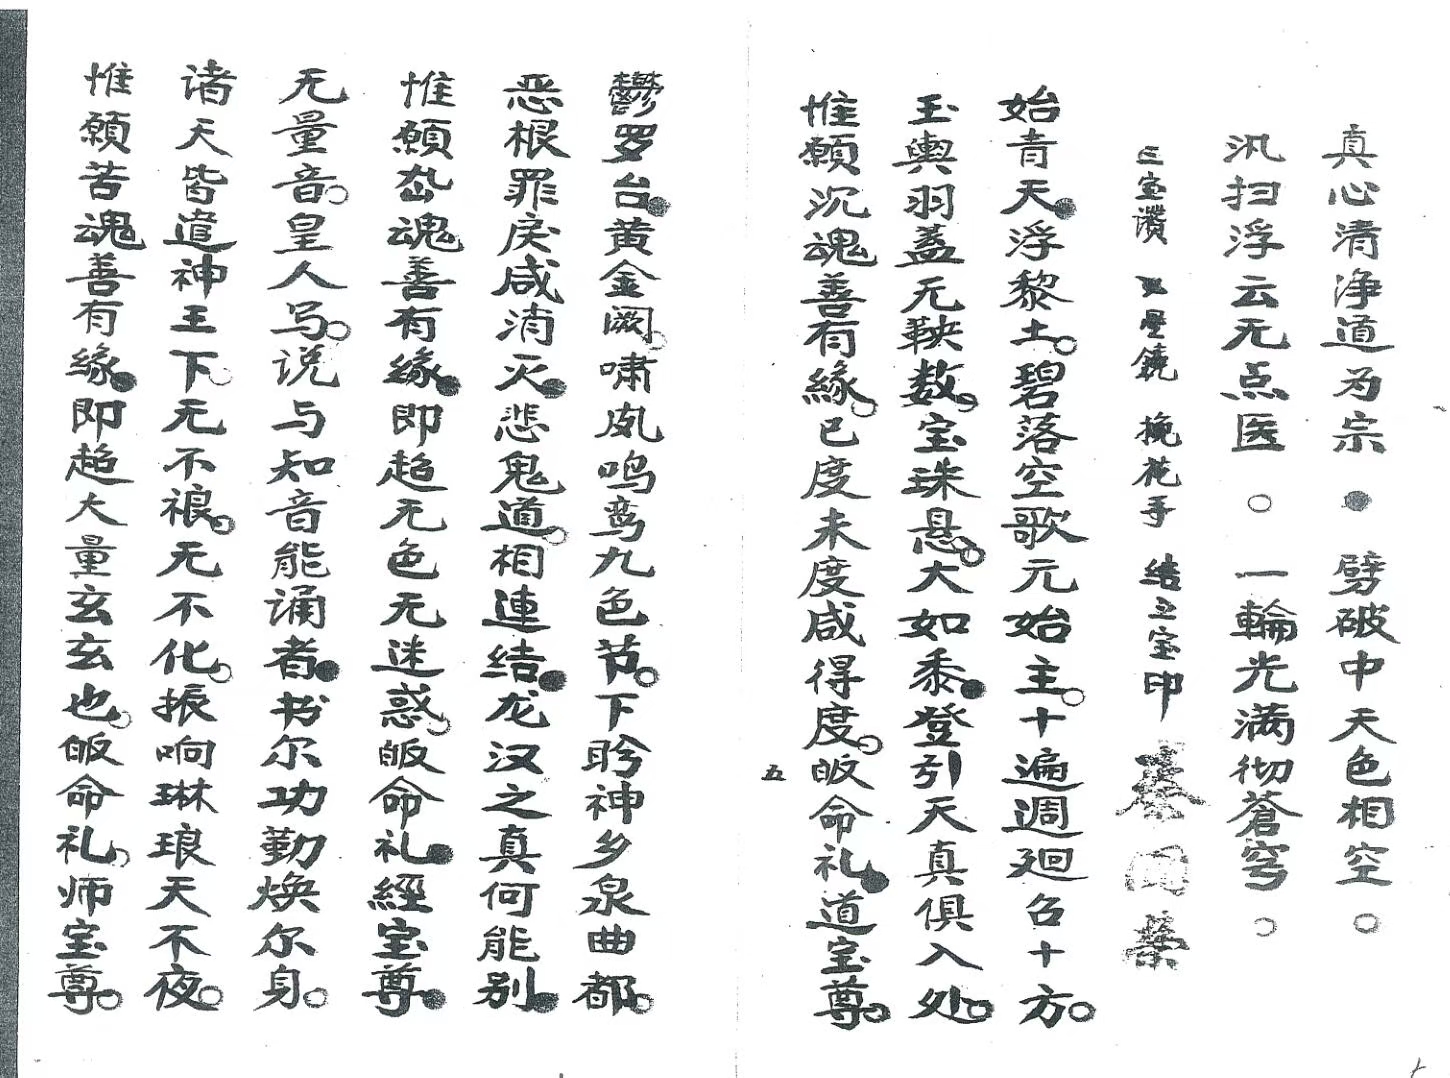 真心清净道为宗●劈破中天色相空○
汛扫浮云无点医○一輪光满彻蒼穹○
三宝讚 又里鐃 挽花手 结立宝印
始青天●浮黎土○碧落空歌元始主○十遍週廻召十方○
玉輿羽盖无鞅数○宝珠悬○大如黍●登引天真俱入处○
惟願沉魂善有緣○已度未度咸得度○皈命礼●道宝尊○
五
鬱罗台●黄金阙○啸凤鸣鸾九色节○下盻神乡泉曲都○
恶根罪戾咸消灭●悲鬼道○相連结●龙汉之真何能别●
惟願魂善有緣●即超无色无迷惑○皈命礼●經宝尊●
无量音○皇人写○说与知音能诵者●书尔功勤焕尔身○
诸天皆遣神王下○无不禐○无不化○振响琳琅天不夜○
惟願苦魂善有緣●即超大量玄玄也○皈命礼○师宝尊○